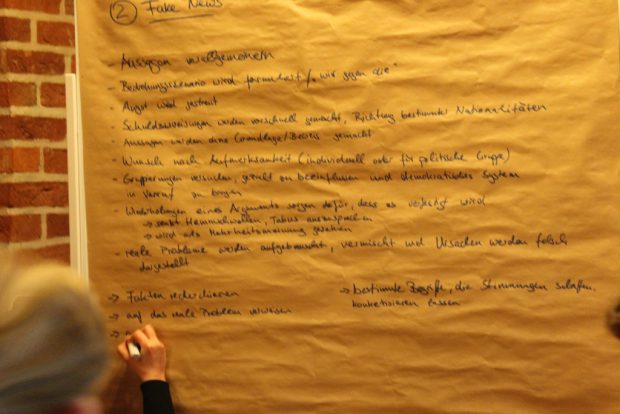 ② Fake News
- Aussagen verallgemeinern
- Bedrohungsszenario wird formuliert / "wir gegen die"
- Angst wird gestreut
- Schuldzuweisungen werden vorschnell gemacht, Richtung bestimmter Nationalitäten
- Aussagen werden ohne Grundlage/Beweis gemacht
- Wunsch nach Aufmerksamkeit (individuell oder für politische Gruppe)
- Gruppierungen versuchen, gezielt zu beeinflussen und demokratisches System
in Verruf zu bringen
- Wiederholungen eines Arguments sorgen dafür, dass es verfestigt wird
→ senkt Hemmschwellen, Tabus auszusprechen
→ wird als Mehrheitsmeinung gesehen
- reale Probleme werden aufgebauscht, vermischt und Ursachen werden falsch
dargestellt
→ Fakten recherchieren
→ auf das reale Problem verweisen
→
→ bestimmte Begriffe, die Stimmungen schaffen,
konkretisieren lassen